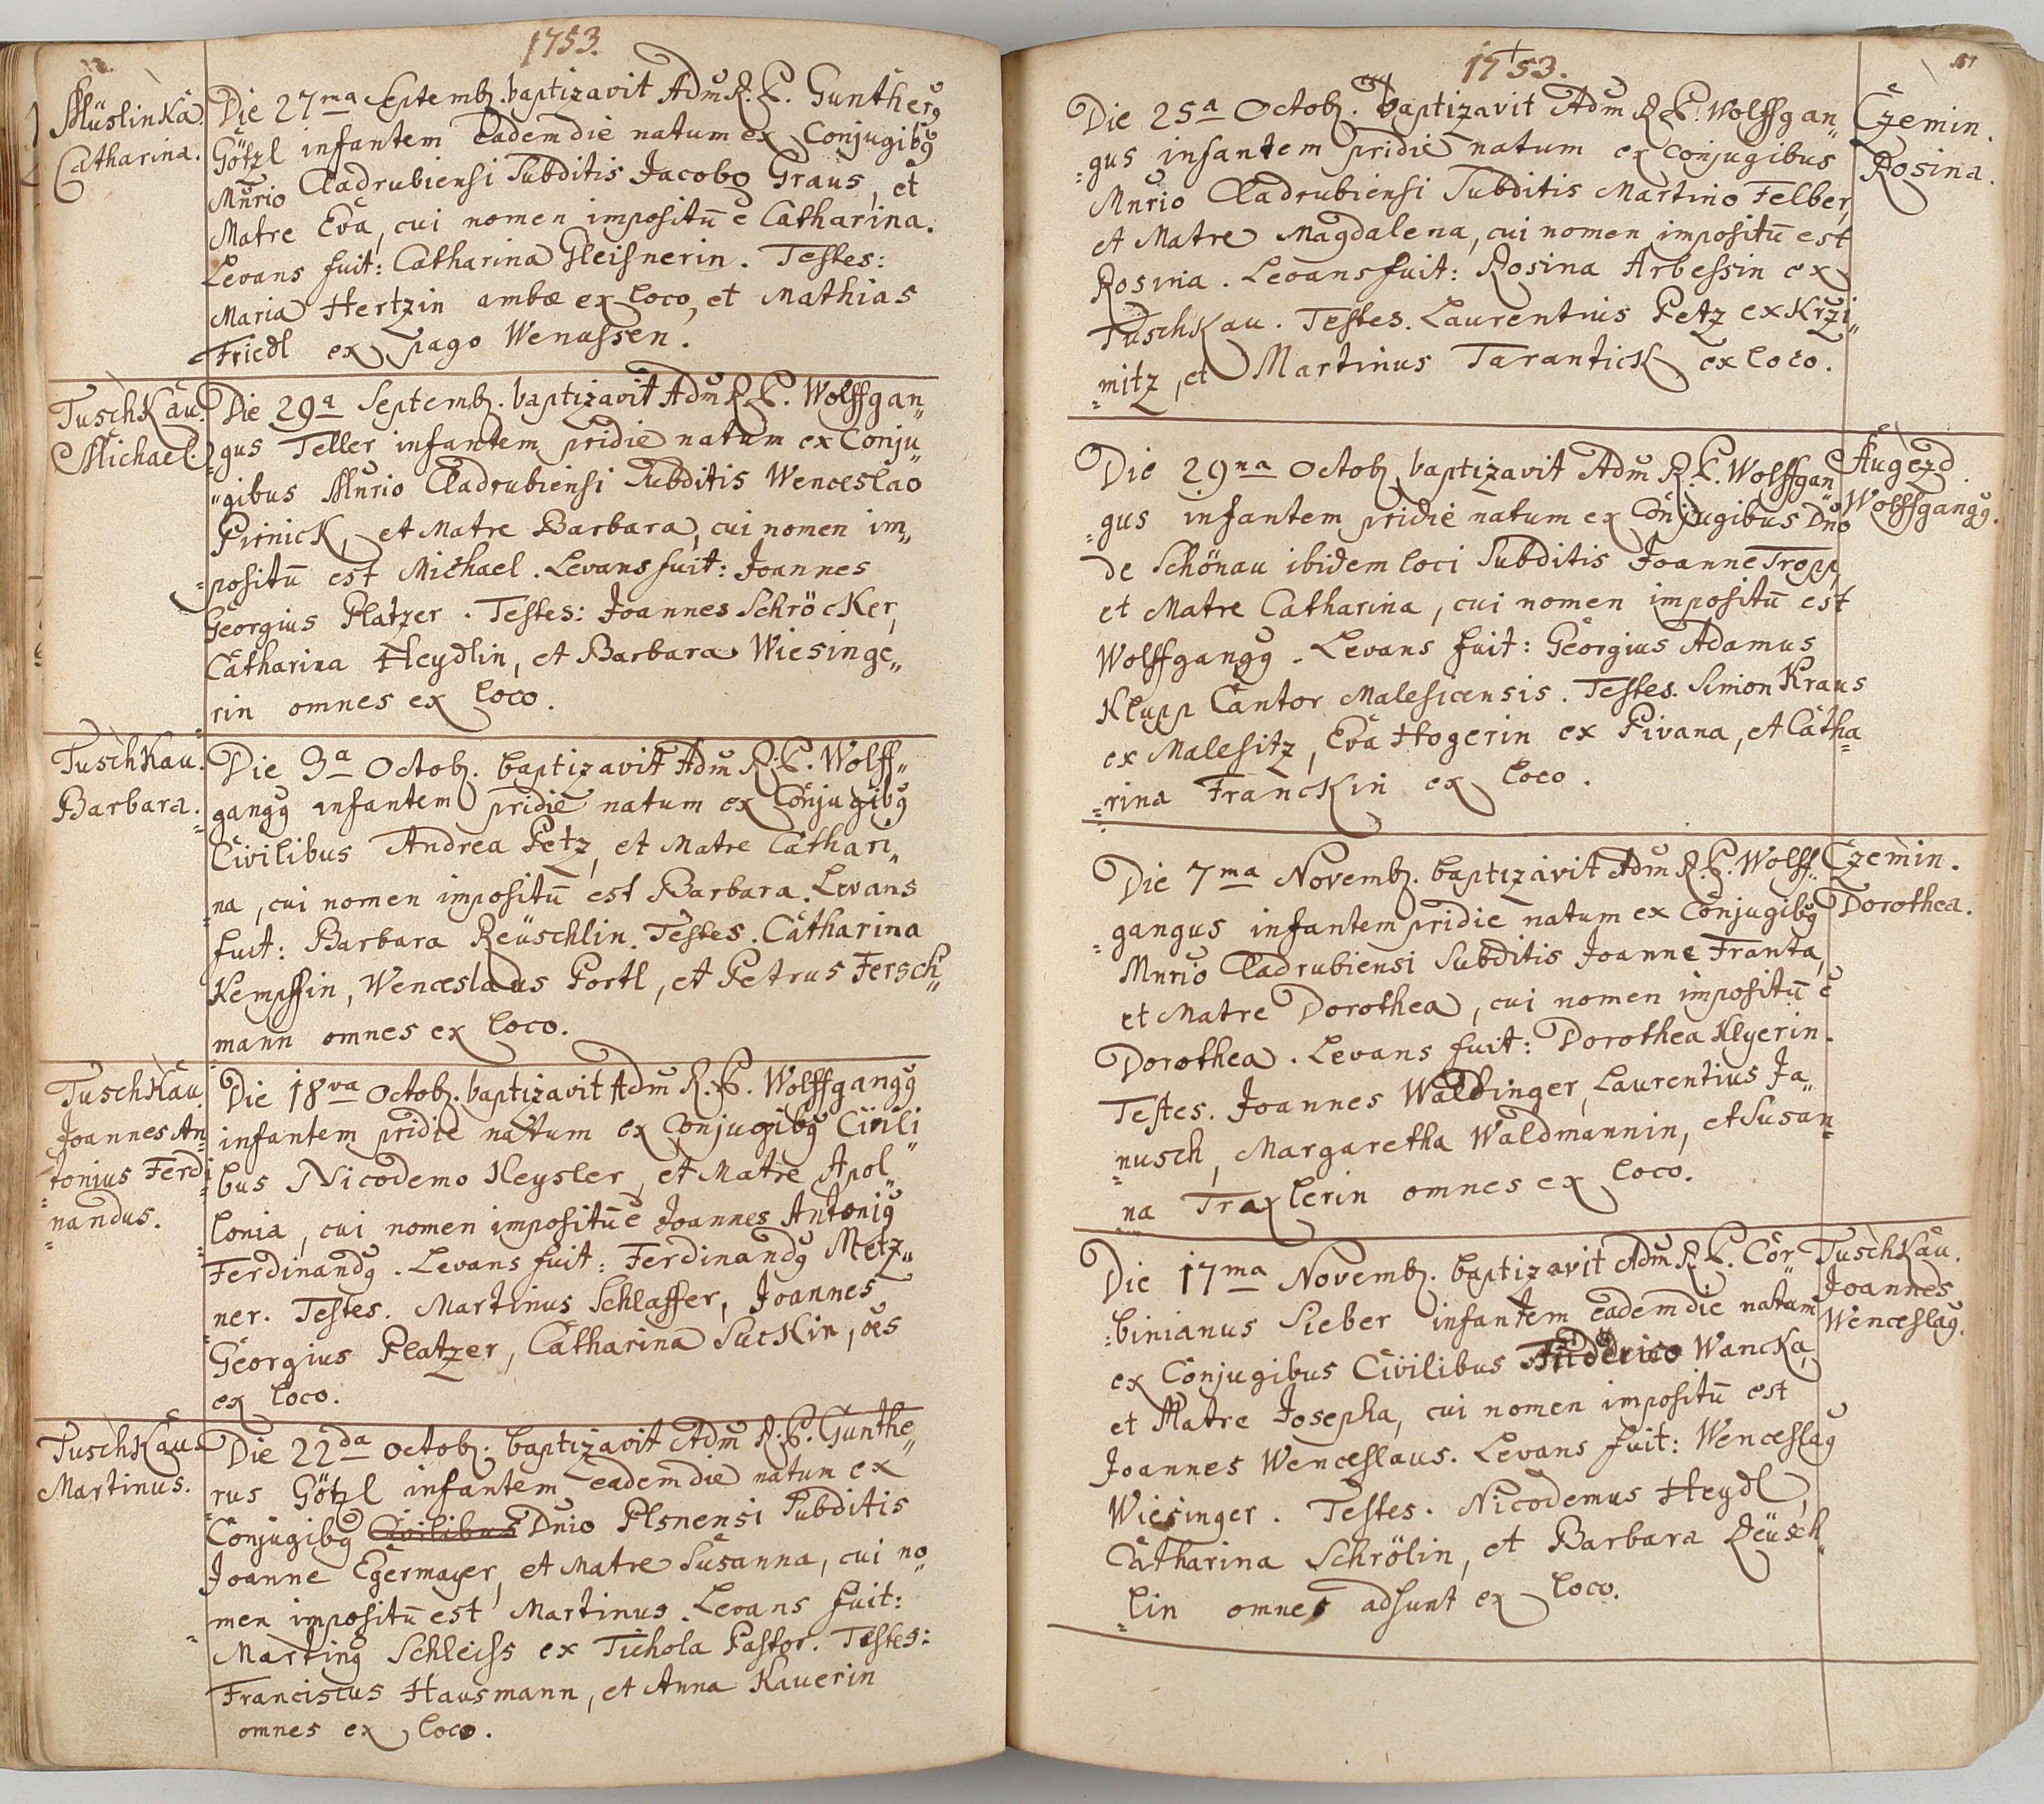 1753.
Müslinka
Catharina.
Die 27ma Septemb. baptizavit Adm R. P. Guntherg
Götzl infantem eadem die natum ex Conjugibg
Mnrio Cladrubiensi Subditis Jacobo Graus, et
Matre Eva, cui nomen impositū ē Catharina.
Levans fuit: Catharina Gleisnerin. Testes:
Maria Hertzin ambæ ex loco, et Mathias
Friedl ex pago Wenussen.
TuschKau.
Michael.
Die 29a Septemb. baptizavit Adm R. P. Wolffgan„
gus Teller infantem pridie natum ex Conju„
„gibus Mnrio Cladrubiensi Subditis Wenceslao
PirnicK, et Matre Barbara, cui nomen im„
=positū est Michael. Levans fuit: Joannes
Georgius Platzer. Testes: Joannes SchröcKer,
Catharina Heydlin, et Barbara Wiesinge„
rin omnes ex loco.
TuschKau.
Barbara.
Die 3a Octob. baptizavit Adm R. P. Wolff„
gangg infantem pridie natum ex Conjugibg
Civilibus Andrea Petz, et Matre Cathari„
=na, cui nomen impositū est Barbara. Levans
fuit: Barbara Reüschlin. Testes. Catharina
Kempffin, Wenceslaus Portl, et Petrus Fersch„
mann omnes ex loco.
TuschKau.
Joannes An=
tonius Ferdi
=nandus.
Die 18va Octob. baptizavit Adm R. P. Wolffgangg
infantem pridie natum ex Conjugibg Civili„
bus Nicodemo Keysler, et Matre Apol„
lonia, cui nomen impositū ē Joannes Antonig
Ferdinandg. Levans fuit: Ferdinandg Metz„
ner. Testes. Martinus Schlaffer, Joannes
Georgius Platzer, Catharina SucKin, oēs
ex loco.
TuschKau
Martinus.
Die 22da Octob. baptizavit Adm R. P. Gunthe„
rus Götzl infantem eadem die natum ex
Conjugibg Civilibus Dnio Plsnensi Subditis
Joanne Egermayer, et Matre Susanna, cui no„
men impositū est Martinus. Levans fuit:
Marting Schleiss ex Tichola Pastor. Testes:
Franciscus Hausmann, et Anna Kauerin
omnes ex loco.
1753.
Die 25a Octob. baptizavit Adm R. P. Wolffgan„
=gus infantem pridie natum ex conjugibus
Mnrio Cladrubiensi Subditis Martino Felber,
et Matre Magdalena, cui nomen impositū est
Rosina. Levans fuit: Rosina Arbessin ex
TuschKau. Testes. Laurentius Petz ex Krzi„
=mitz, et Martinus TaranticK ex loco.
Czemin.
Rosina.
Die 29na Octob. baptizavit Adm R. P. Wolffgan„
=gus infantem pridie natum ex Conjugibus Dno
de Schönau ibidem loci Subditis Joanne Tropp,
et Matre Catharina, cui nomen impositū est
Wolffgangg. Levans fuit: Georgius Adamus
Klupp Cantor Malesicensis. Testes. Simon Kraus
ex Malesitz, Eva Hogerin ex Pivana, et Catha=
=rina FrancKin ex loco.
Augezd.
Wolffgangg.
Die 7ma Novemb. baptizavit Adm R. P. Wolff„
=gangus infantem pridie natum ex Conjugibg
Mnrio Cladrubiensi Subditis Joanne Franta,
et Matre Dorothea, cui nomen impositū ē
Dorothea. Levans fuit: Dorothea Klyerin.
Testes. Joannes Waldinger, Laurentius Ja„
=nusch, Margaretha Waldmannin, et Susan=
na Traxlerin omnes ex loco.
Czemin.
Dorothea.
Die 17ma Novemb. baptizavit Adm R. P. Cor„
=binianus Sieber infantem eadem die natum
ex Conjugibus Civilibus WancKa,
et Matre Josepha, cui nomen impositū est
Joannes Wenceslaus. Levans fuit: Wenceslag
Wiesinger. Testes. Nicodemus Heydl,
Catharina Schrölin, et Barbara Reüsch„
=lin omnes adsunt ex loco.
TuschKau.
Joannes
Wenceslag.